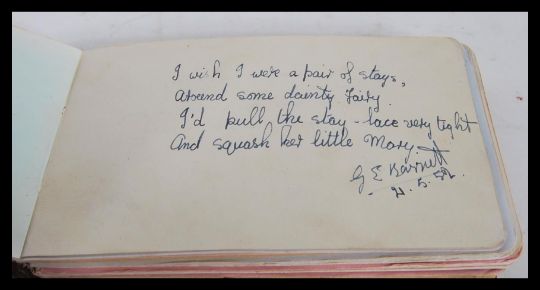 I wish I were a pair of stays,
Around some dainty fairy.
I'd pull the stay-lace very tight
And squash her little Mary.
G E Barnett
21.5.52.